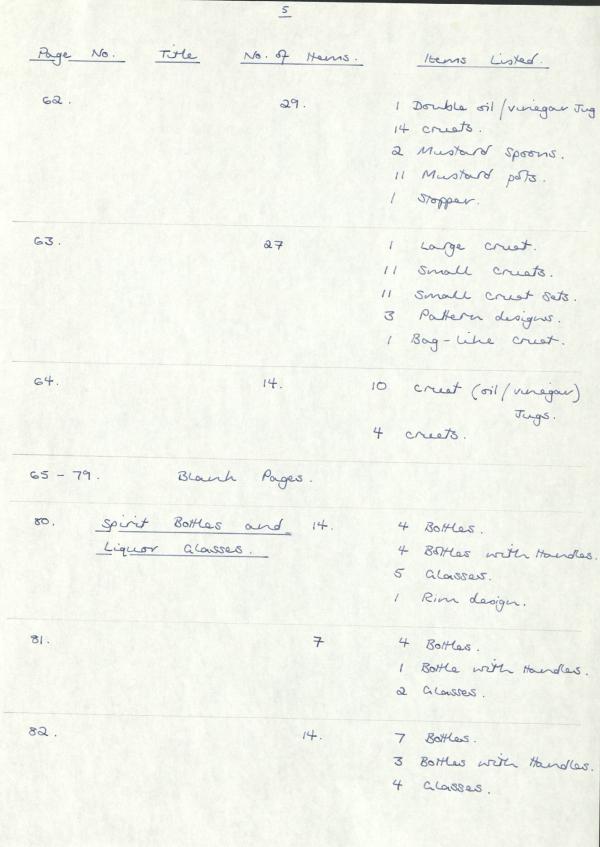 5
Page No. Title No. of Items. Items Listed.
62. 29. 1 Double oil/vinegar Jug
14 cruets.
2 Mustard Spoons.
11 Mustard pots.
1 Stopper.
63. 27 1 Large cruet.
11 Small cruets.
11 Small cruet sets.
3 Pattern designs.
1 Bag-like cruet.
64. 14. 10 cruet (oil/vinegar)
Jugs.
4 cruets.
65 - 79. Blank Pages.
80. Spirit Bottles and 14. 4 Bottles.
Liquor Glasses. 4 Bottles with Handles.
5 Glasses.
1 Rim design.
81. 7 4 Bottles.
1 Bottle with Handles.
2 Glasses.
82. 14. 7 Bottles.
3 Bottles with Handles.
4 Glasses.